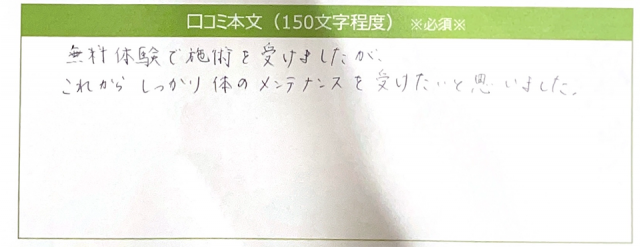 口コミ本文（150文字程度） ※必須※
無料体験で施術を受けましたが、
これからしっかり体のメンテナンスを受けたいと思いました。